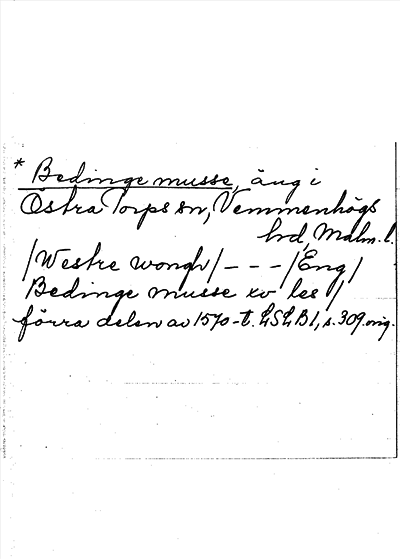 * Bedinge musse, äng i
Östra Torps sn, Vemmenhögs
hd, Malm. l.
/Westre wongh/ - - - /Eng/
Bedinge musse xv les /
förra delen av 1570-t. LSLB1, s. 309. orig.